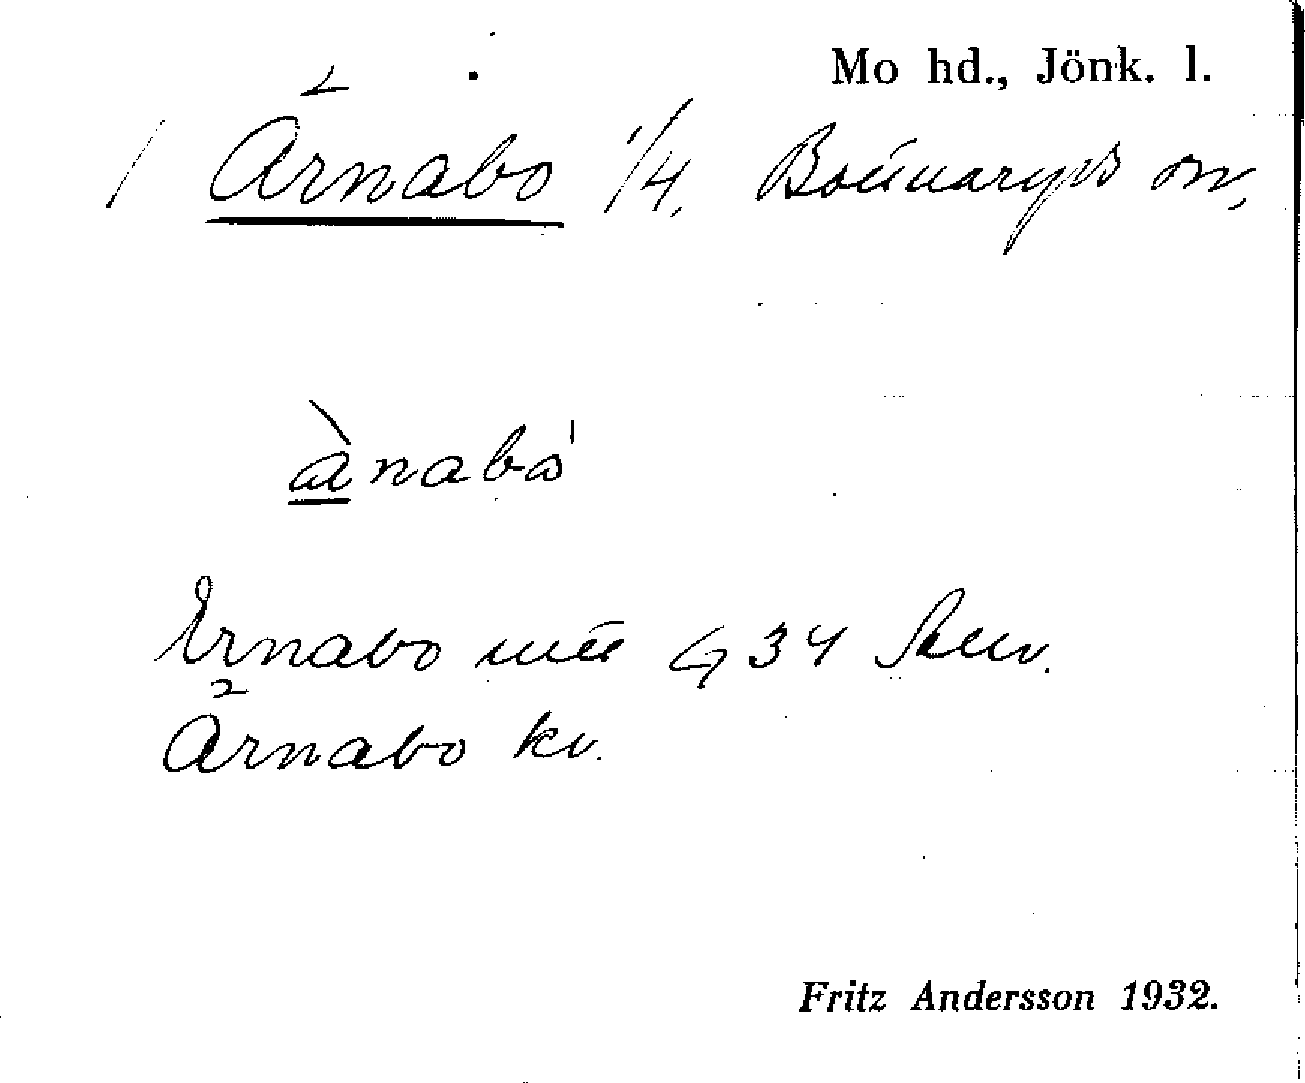 Mo hd., Jönk. l.
/ Årnabo 1/4, Bottnaryds sn,
ànabo
Ernabo mtl G 34 Skuv.
Årnabo kv.
Fritz Andersson 1932.